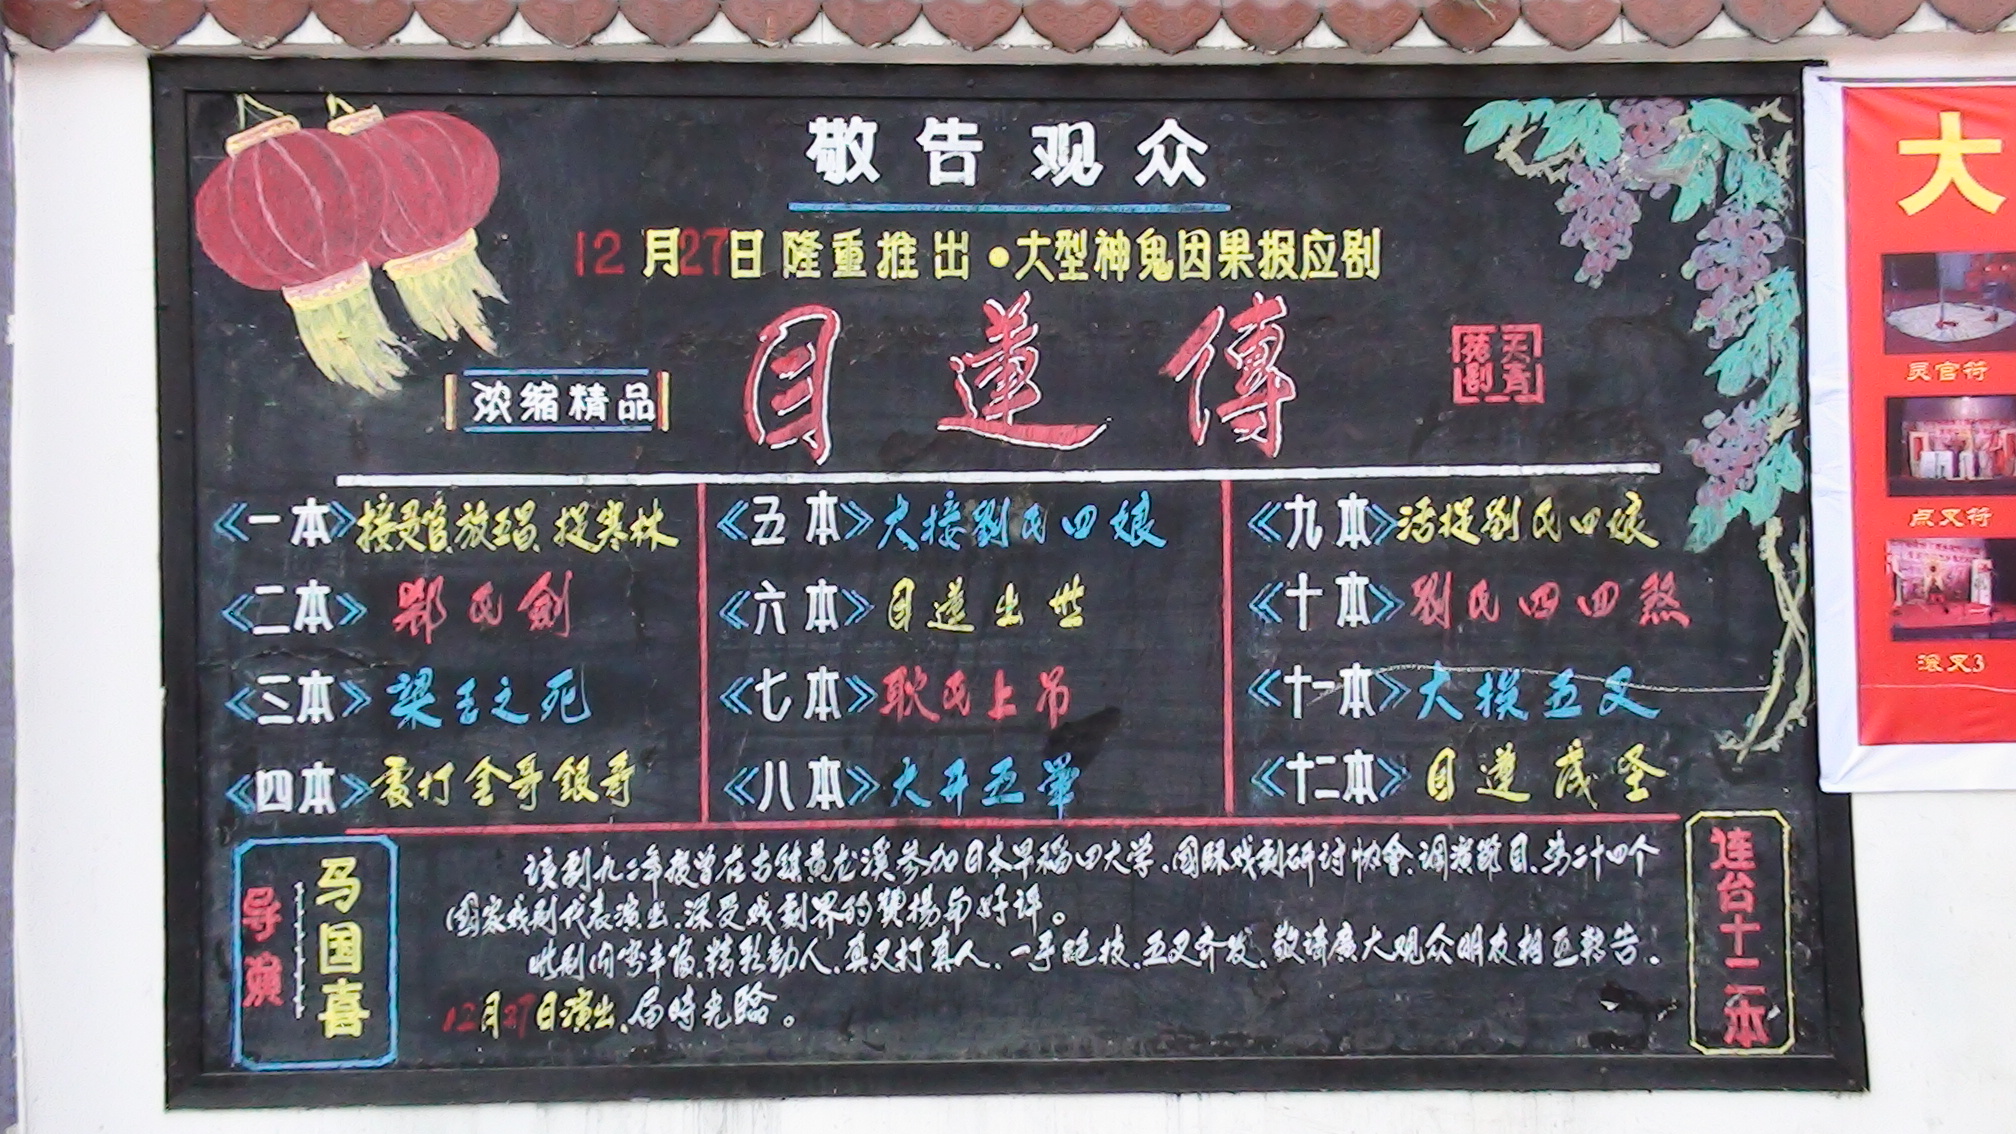 敬告观众
12月27日隆重推出·大型神鬼因果报应剧
浓缩精品
目蓮傳
天青
苑剧
《一本》接灵官放五昌捉寒林
《二本》郑氏劍
《三本》梁王之死
《四本》雷打金哥銀哥
《五本》大接劉氏四娘
《六本》目蓮出世
《七本》耿氏上吊
《八本》大开五葷
《九本》活捉劉氏四娘
《十本》劉氏四四煞
《十一本》大操五叉
《十二本》目蓮成圣
导演
马国喜
该剧九二年授曾在古鎮黄龙溪参加日本早稲田大学、國际戏剧研讨协會、调演節目、为二十四个
國家戏剧代表演出、深受戏剧界的赞揚和好评。
此剧内容丰富、精彩動人、真叉打真人、一手绝技、五叉齐发、敬请廣大观众朋友相互转告.
12月27日演出、届時光臨。
连台十二本
大
灵官符
点叉符
滚叉3